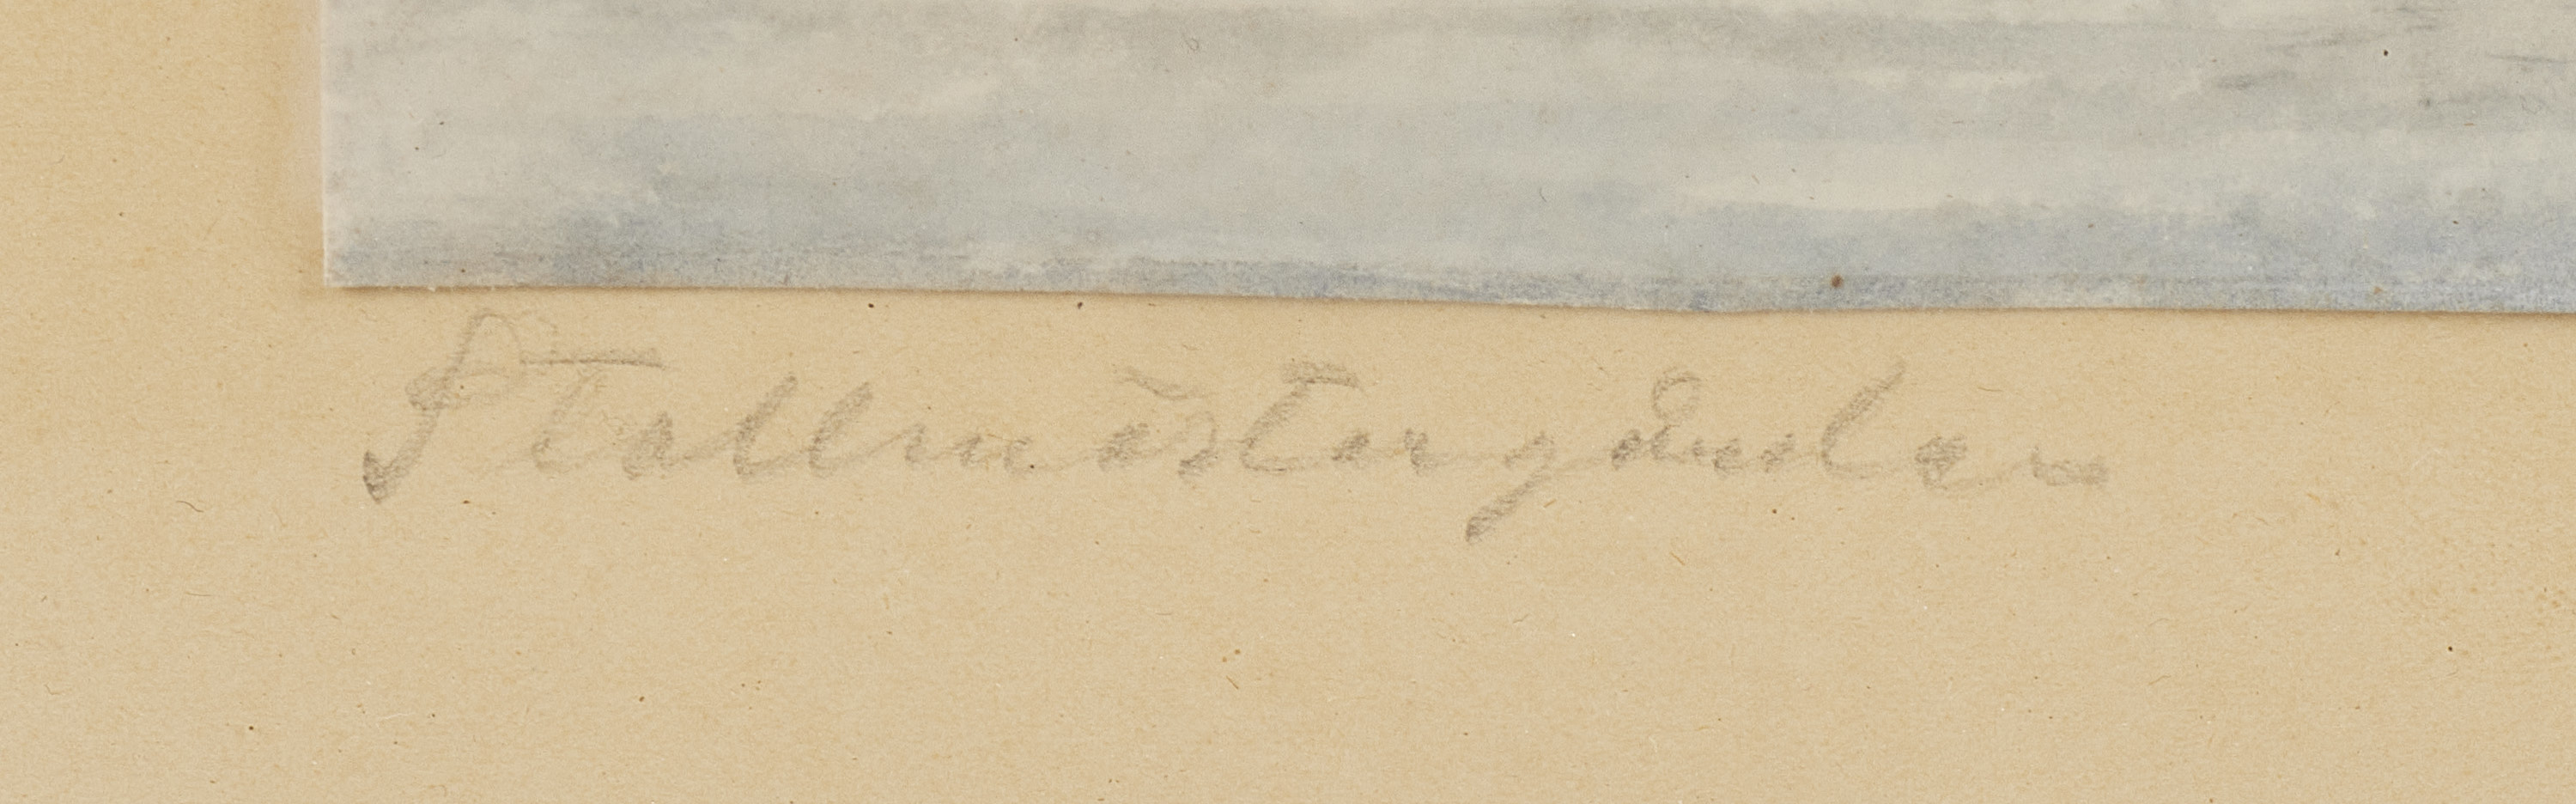 Stallmästergården